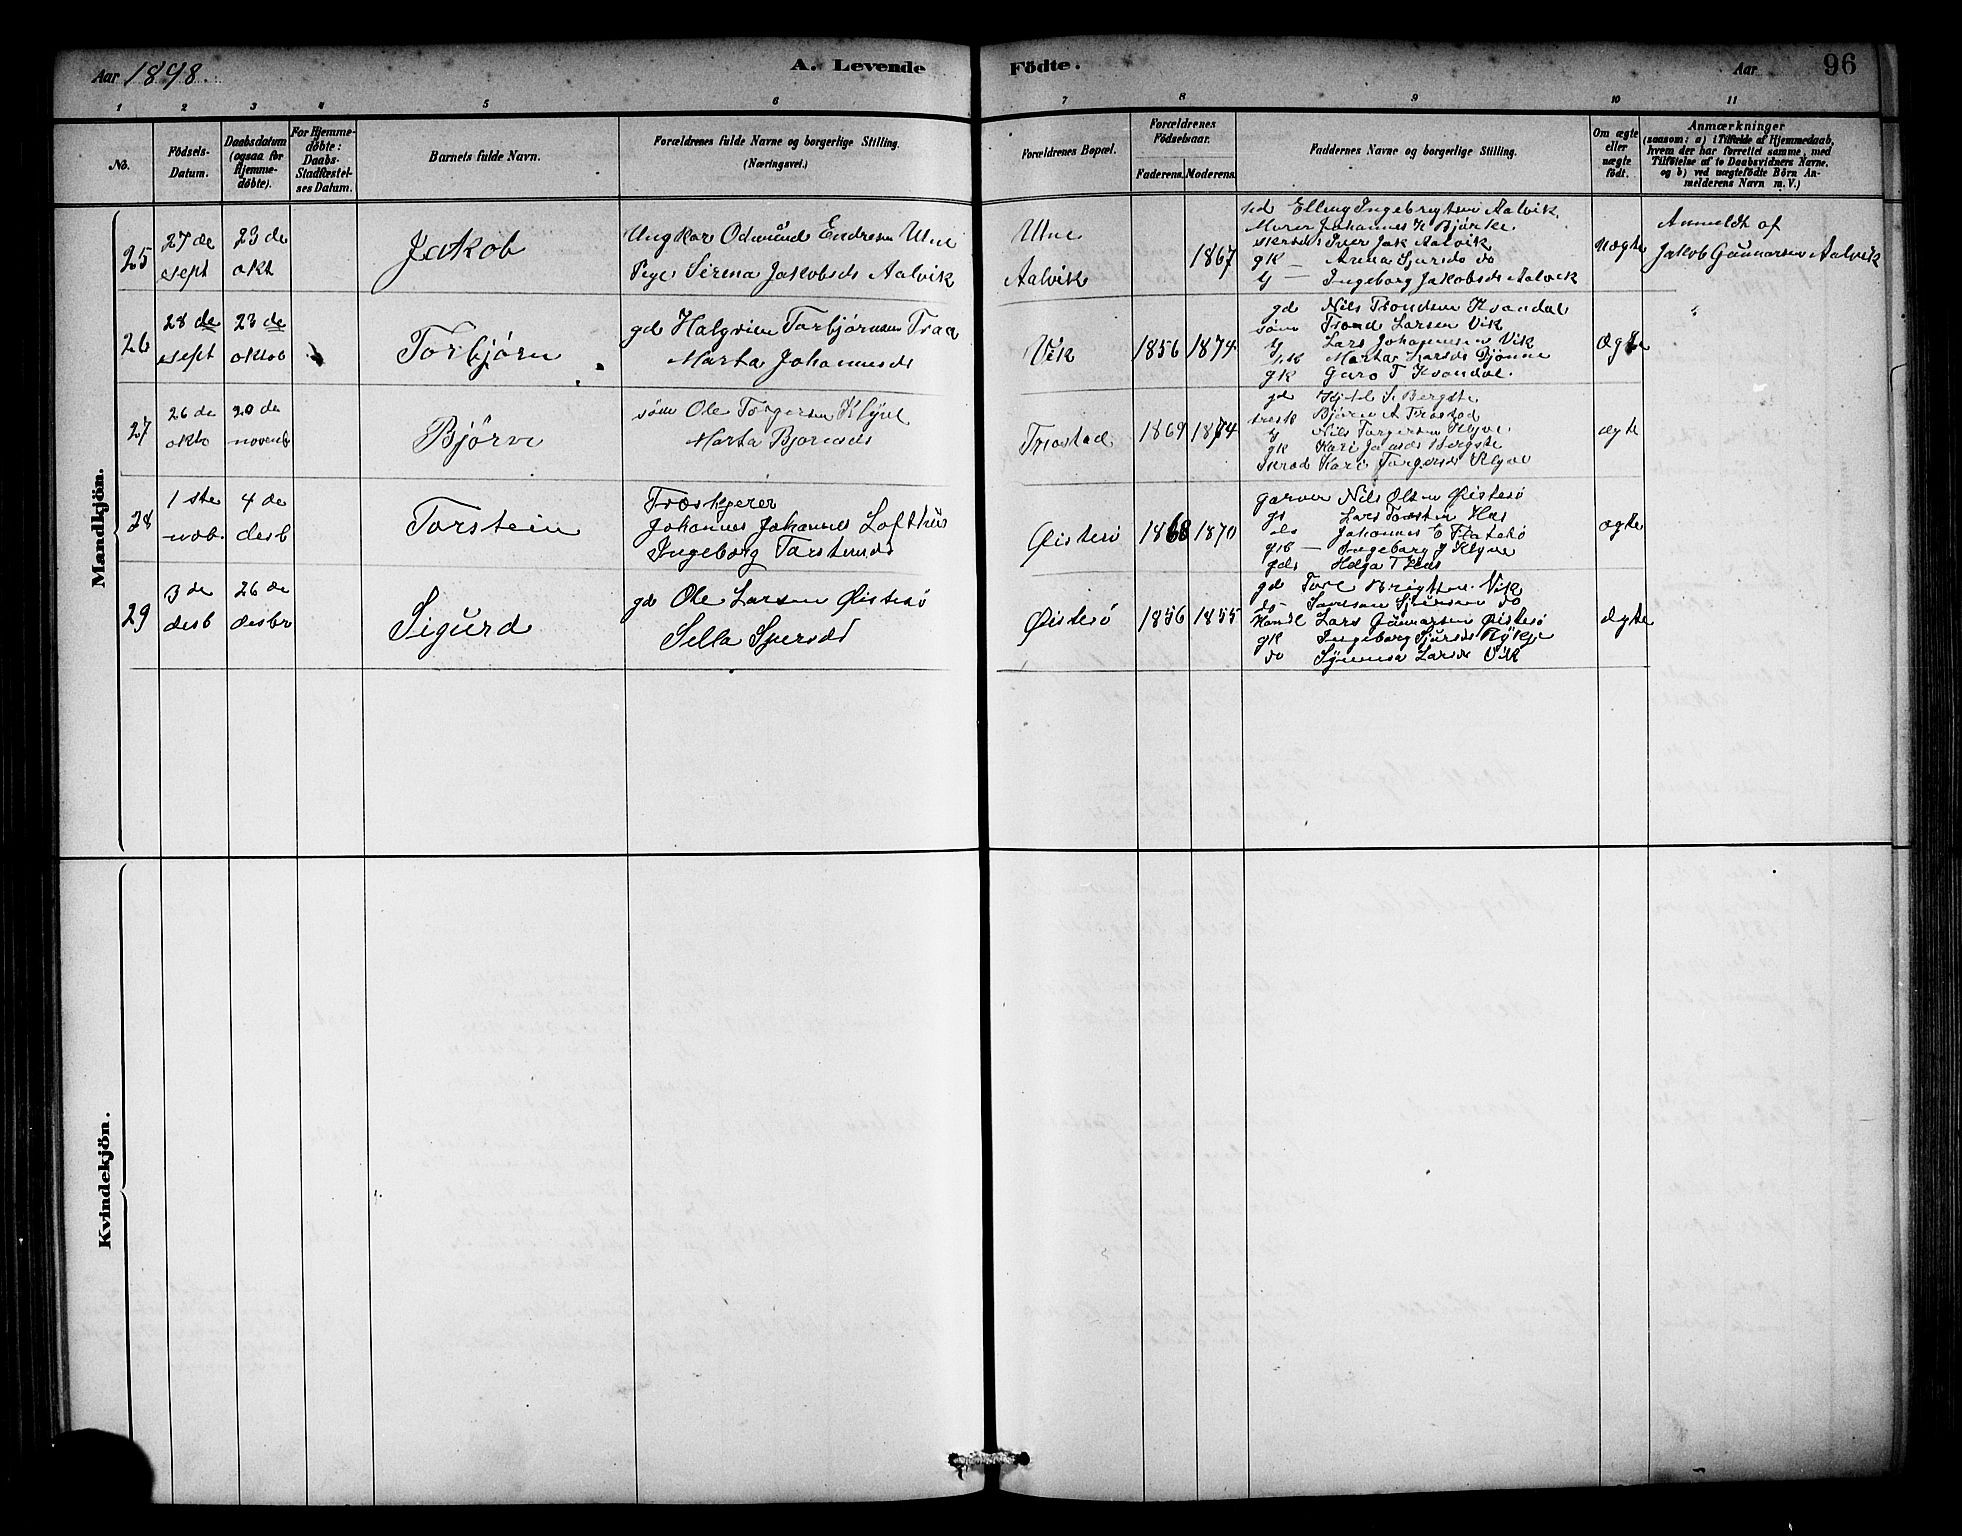 Aar 1898.
A. Levende Födte.
Aar 96
1 2 3 4 5 6 7 8 9 10 11
No.
Födsels-Datum.
Daabsdatum (ogsaa for Hjemme-döbte).
For Hjemme-döbte: Daabs-Stadfæstel-ses Datum.
Barnets fulde Navn.
Forældrenes fulde Navne og borgerlige Stilling. (Næringsvei.)
Forældrenes Bopæl.
Forældrenes Födselsaar.
Faderens. Moderens.
Faddernes Navne og borgerlige Stilling.
Om ægte eller uægte født.
Anmærkninger
(saasom: a) i Tilfælde af Hjemmedaab,
hvem der har forrettet samme, med
Tilföielse af to Daabsvidners Navne,
og b) ved uægtefödte Börn An-
melderens Navn m. V.)
Mandkjön.
25
27 de sept
23 de okt
Jakob
Ungkar Odmund Endresen Utne
Pige Sirena Jakobsds Aalvik
Utne
Aalvik
1867
Elling Ingebrigtsen Aalvik
Murer Johannes K Bjørke
Iver Jak Aalvik
gk — Anna Sjursds do
— Ingeborg Jakobsds Aalvik
uægte
Anmeldt af
Jakob Gunnarsen Aalvik
26
28 de sept
23 de oktob
Torbjørn
gd Halgrim Torbjørnsen Traa
Marta Johannesds
Vik
1856 1874
gd Nils Trondsen Kvandal
søn Trond Larsen Vik
Lars Johannesen Vik
Marta Larsds Bjønne
gk Guro T Kvandal.
Ægte
"
27
26 de okto
20 de novemb
Bjørn
søn Ole Torgersen Klyve
Marta Bjornsds
Trostad
1869 1874
gd S Bergste
Bjørn A Trostad
Nils Torgersen Klyve
gk Kari Bergste
Kari Torgersds Klyve
ægte
28
1 ste nob.
4 de desb
Torstein
Træskjerer
Johannes Johannes Lofthus
Ingeborg Torsteinsds
Øistesø
1868 1870
garver Nils Olsen Øistesø
Lars Torstein
Johannes E Flatebø
— Ingeborg J Klyve
Helga T
ægte
29
3 de desb
26 de desbr
Sigurd
gd Ole Larsen Øistesø
Sella Sjursds
Øistesø
1856 1855
gd Tore Brigtsen Vik
do Sjursen do
Handl Lars Gunnarsen Øistesø
gk Ingeborg Sjursds Flykje
do Synneva Larsds Vik
ægte
Kvindekjön.